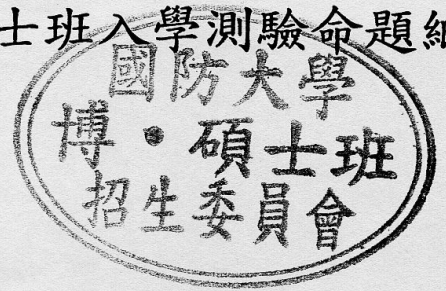 士班入學測驗命題
國防大學
博•碩士班
招生委員會